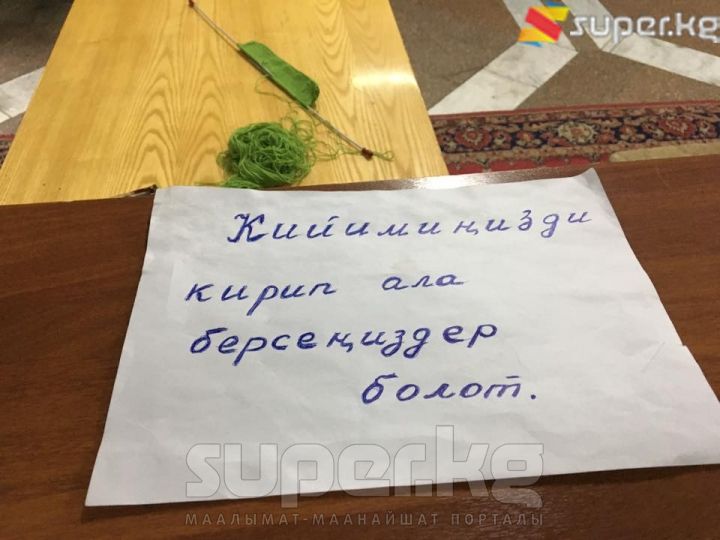 super.kg
Кийимиңизди
кирип ала
берсеңиздер
болот.
super.kg
МААЛЫМАТ-МААНАЙШАТ ПОРТАЛЫ